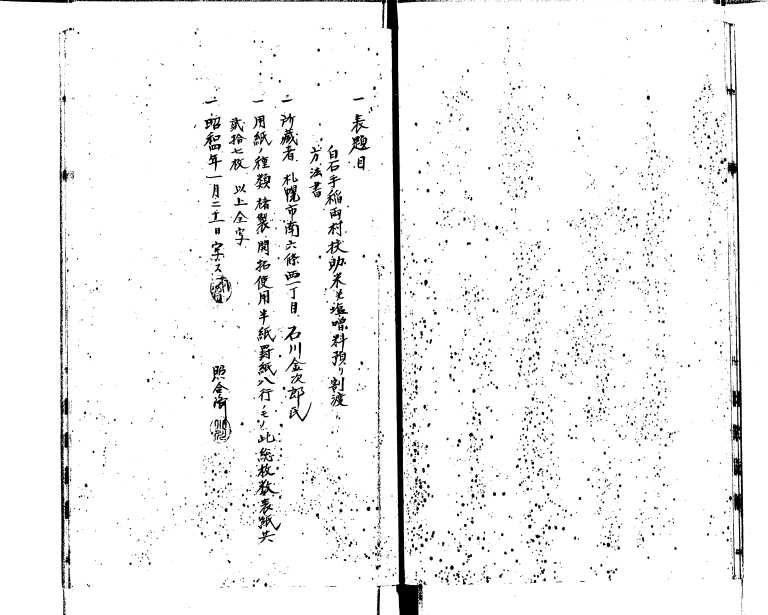 一表題目
白石手稲両村扶助米並塩噌料預リ割渡シ
方法書
一所蔵者 札幌市南六條西一丁目 石川金次郎氏
一用紙ノ種類 楮製開拓使用半紙罫紙八行ノモノ此総枚数表紙共
貳拾七枚 以上全写
一昭和四年一月二十二日写ス
照合済